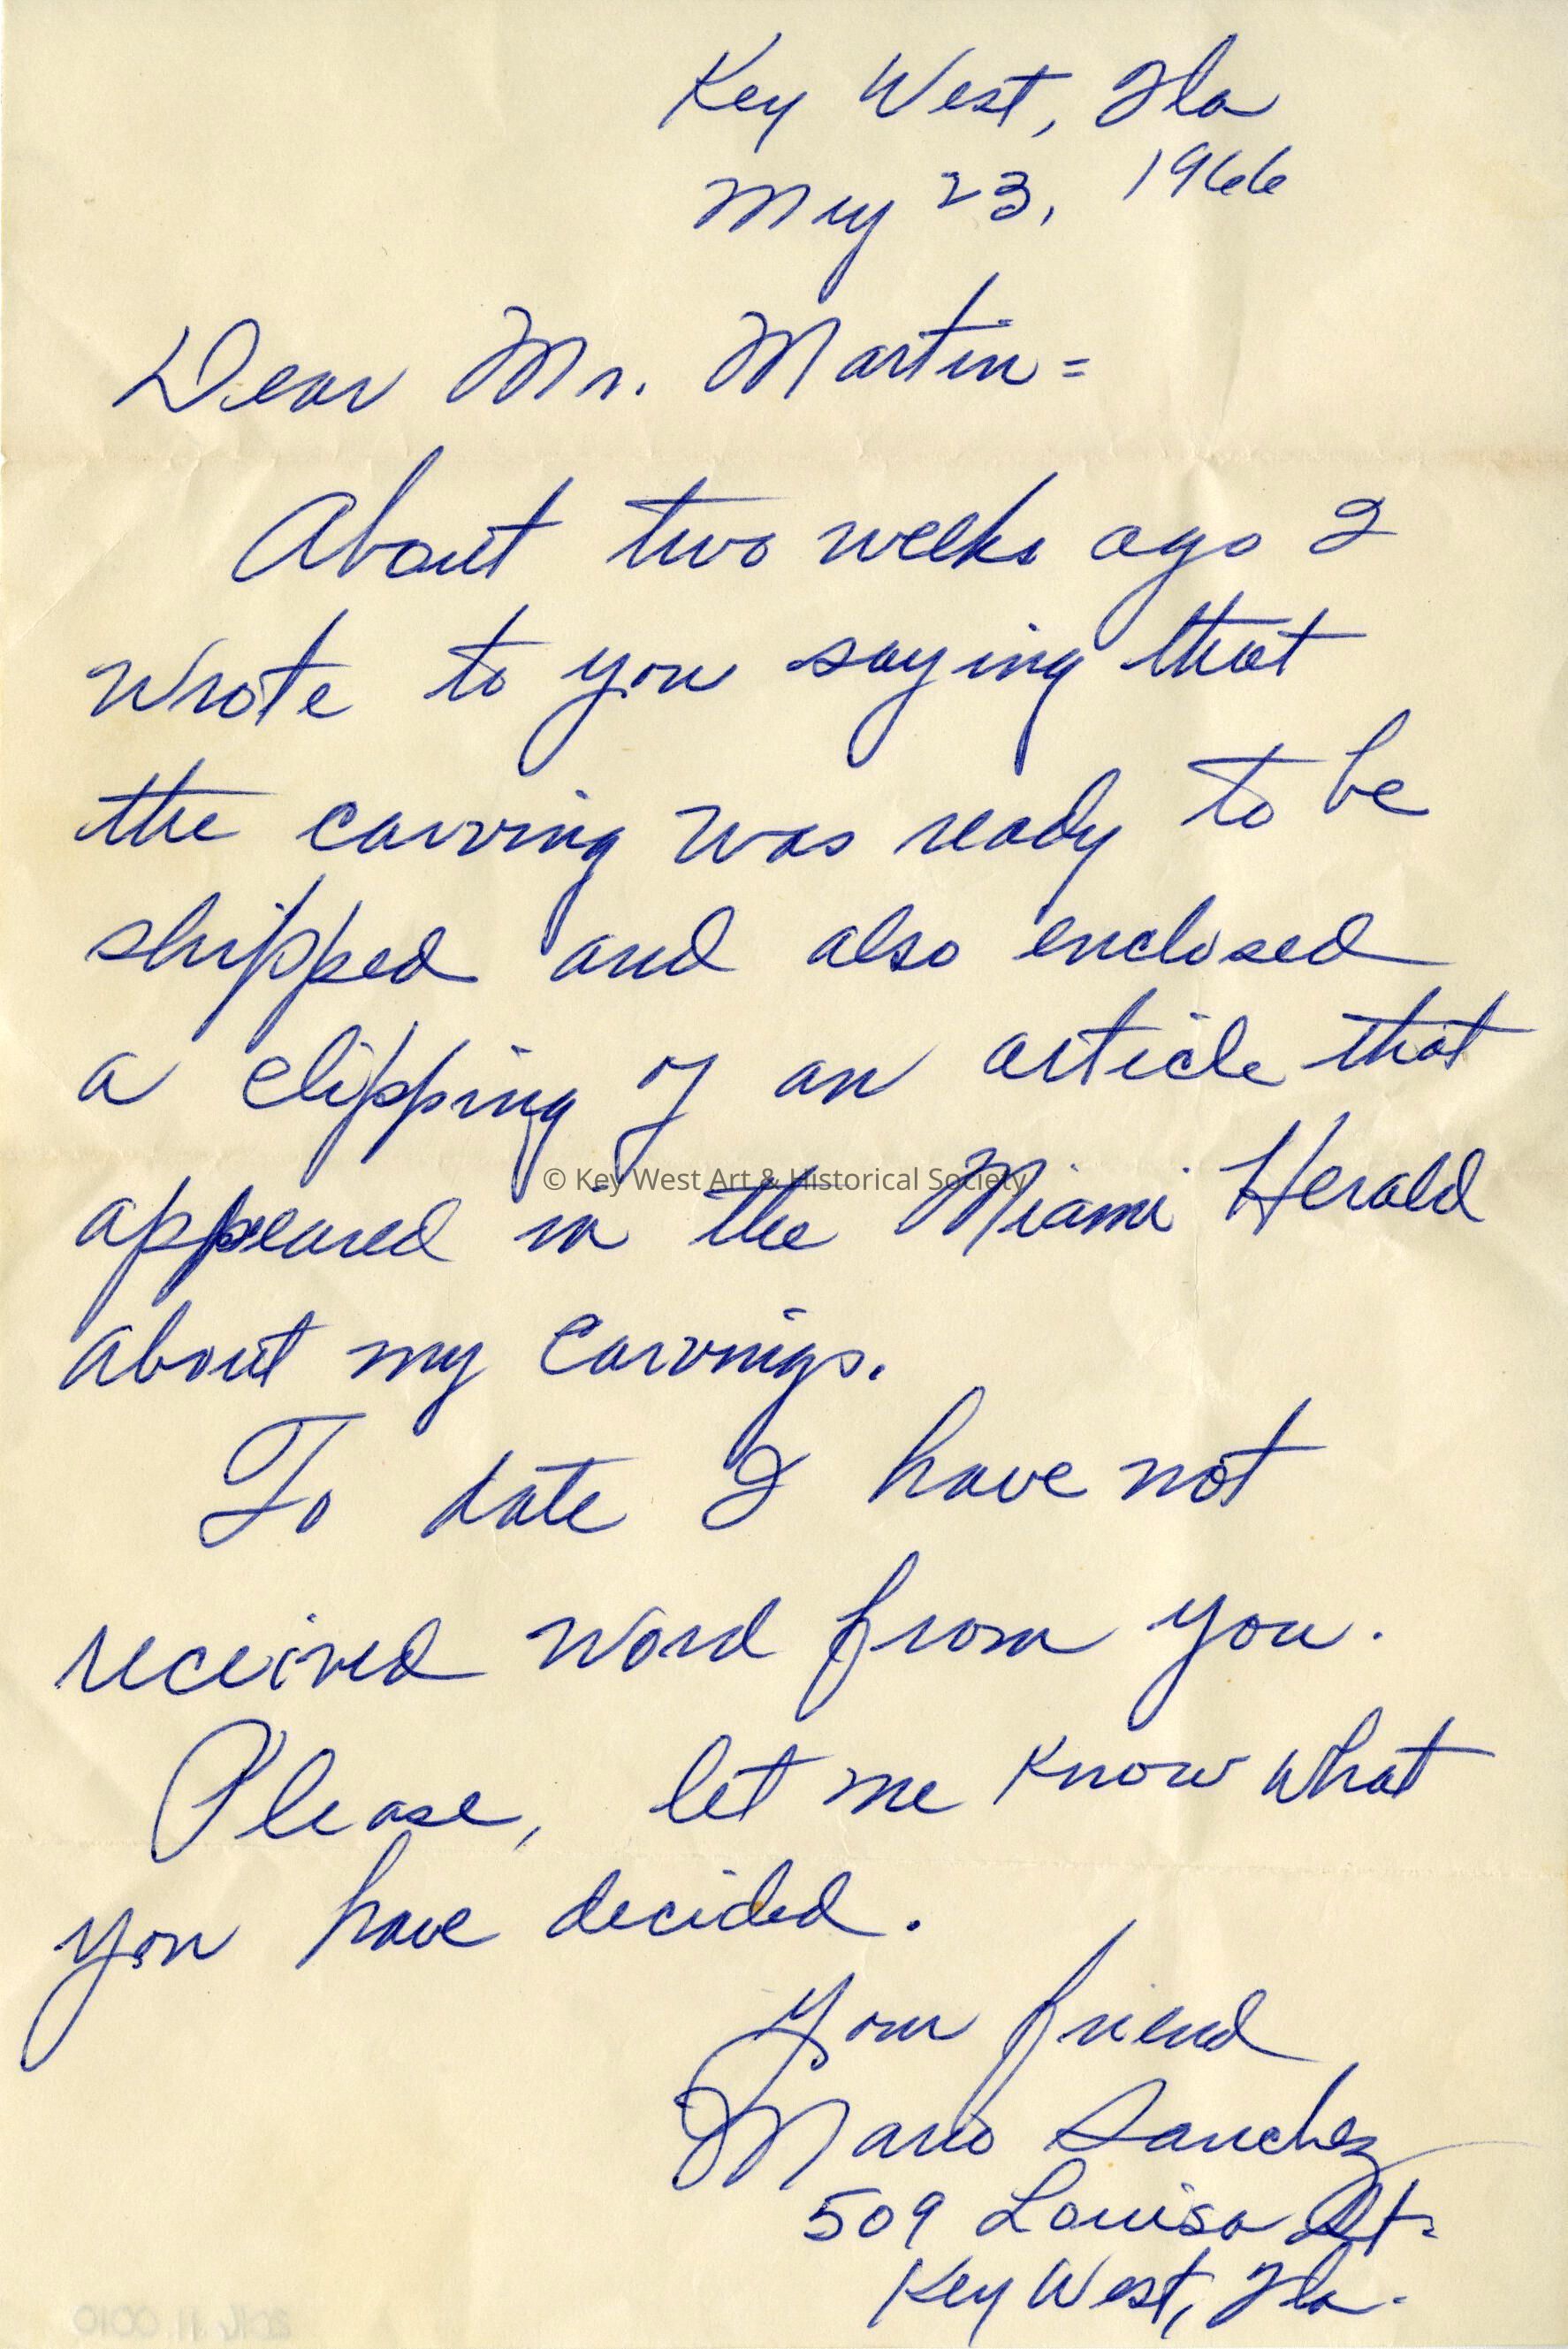 Key West, Fla
May 23, 1966
Dear Mr. Martin=
About two weeks ago I
wrote to you saying that
the carving was ready to be
shipped and also enclosed
a clipping of an article that
© Key West Art & Historical Society
appeared in the Miami Herald
about my carvings.
To date I have not
received word from you.
Please, let me know what
you have decided.
Your friend
Mario Sanchez
509 Louisa St.
Key West, Fla.